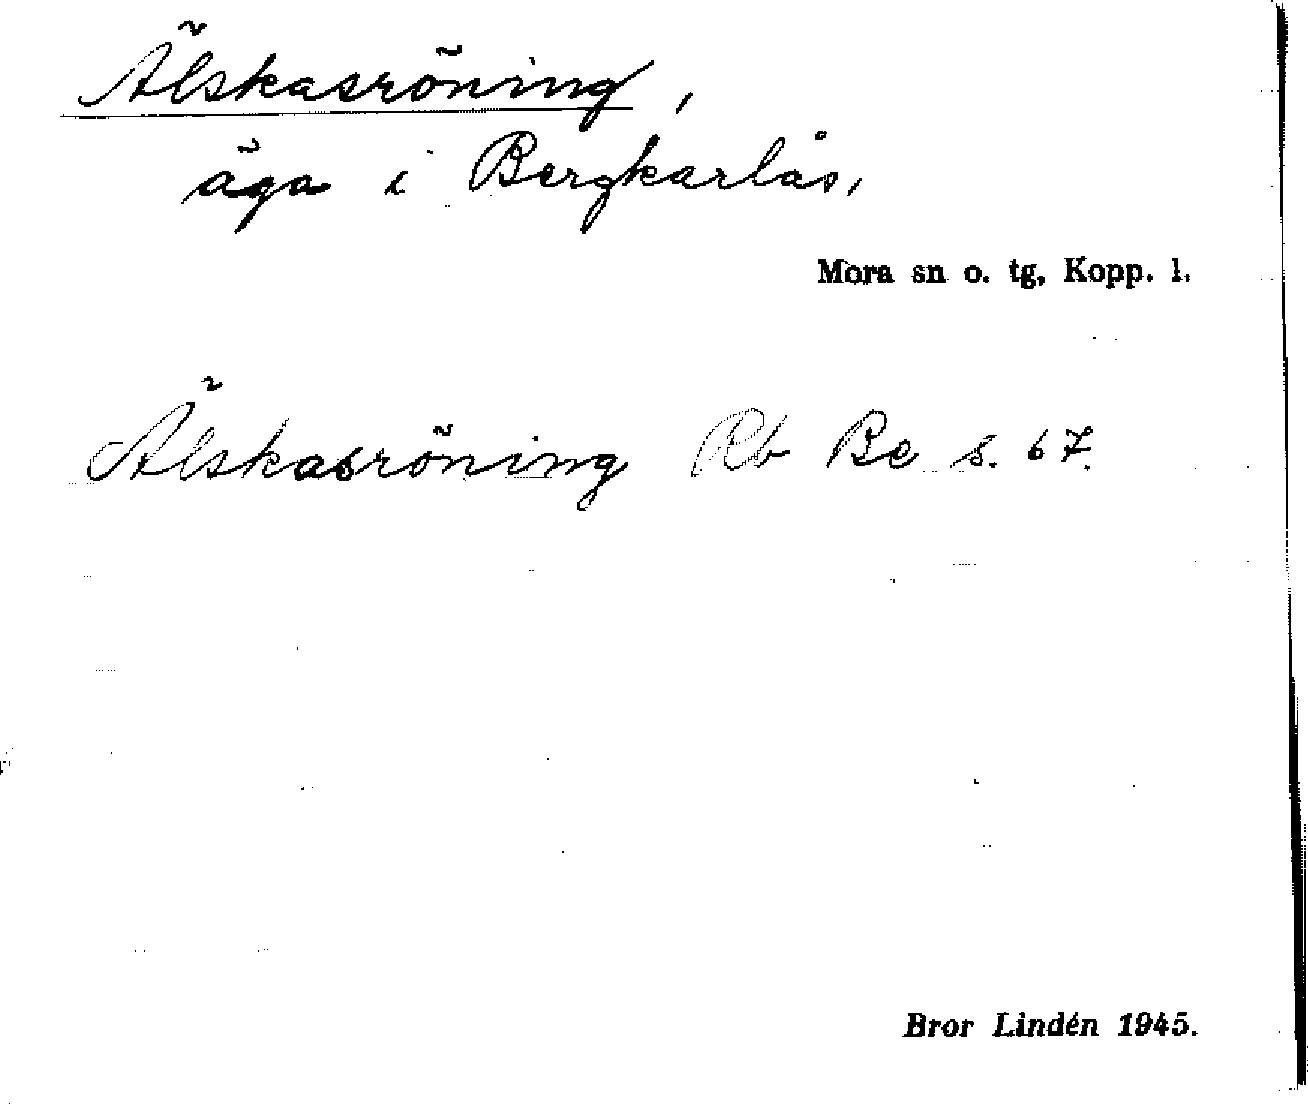 Älskasröning,
äga i Bergkarlås,
Mora sn o. tg, Kopp. l.
Älskasröning Rb Be s. 67.
Bror Lindén 1945.